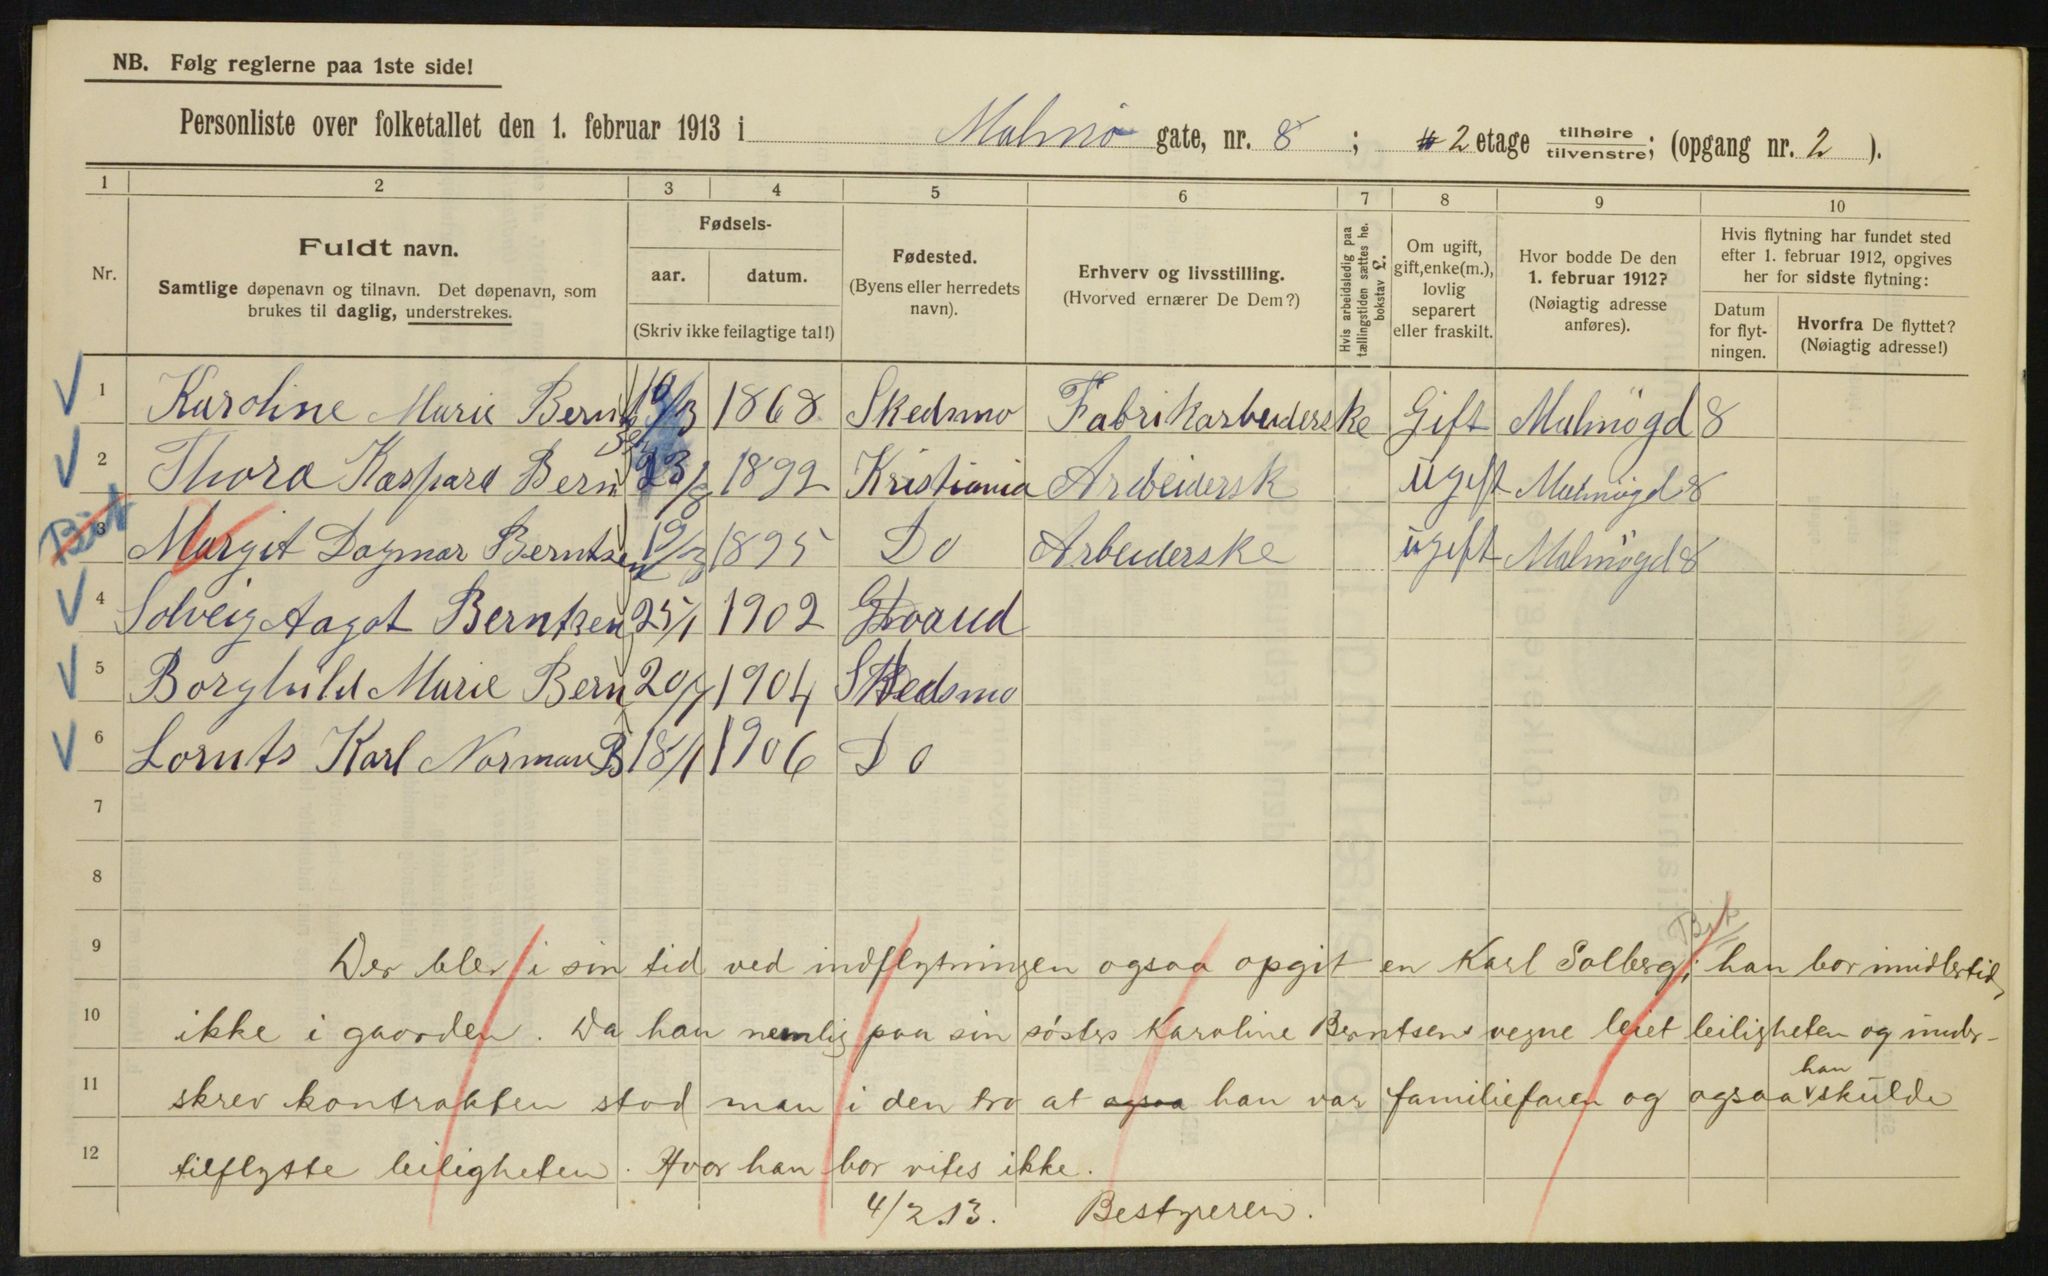 NB. Følg reglerne paa 1ste side!
Personliste over folketallet den 1. februar 1913 i Malmö gate, nr. 8 ; 2 etage tilhøire tilvenstre; (opgang nr. 2 ).
1 2 3 4 5 6 7 8 9 10
Nr.
Fuldt navn.
Samtlige døpenavn og tilnavn. Det døpenavn, som
brukes til daglig, understrekes.
Fødsels-
aar. datum.
(Skriv ikke feilagtige tal!)
Fødested.
(Byens eller herredets
navn).
Erhverv og livsstilling.
(Hvorved ernærer De Dem?)
Hvis arbeidsledig paa
tællingstiden sættes he.
bokstav L.
Om ugift,
gift, enke(m.),
lovlig
separert
eller fraskilt.
Hvor bodde De den
1. februar 1912?
(Nøiagtig adresse
anføres).
Hvis flytning har fundet sted
efter 1. februar 1912, opgives
her for sidste flytning:
Datum
for flyt-
ningen.
Hvorfra De flyttet?
(Nøiagtig adresse!)
1 Karoline Marie Berntsen 1868 Skedsmo Fabrikarbeiderske Gift Malmögd 8
2 Thora Kaspara Bern 23/8 1892 Kristiania Arbeidersk ugift Malmögd 8
3 Margit Dagmar Berntsen 19/3 1895 Do Arbeiderske ugift Malmögd 8
4 Solveig Aagot Berntsen 25/1 1902
5 Borghild Marie Bern 20/7 1904 Skedsmo
6 Lornts Karl Norman B 18/1 1906 Do
7
8
9 Der blev i sin tid ved indflytningen ogsaa opgit en Karl Solberg; han bor imidlertid
10 ikke i gaarden. Da han nemlig paa sin søsters Karoline Berntsens vegne leiet leiligheten og under-
11 skrev kontrakten stod man i den tro at ogsaa han var familiefaren og ogsaa han skulde
12 tilflytte leiligheten. Hvor han bor vites ikke.
4/2.13. Bestyreren.